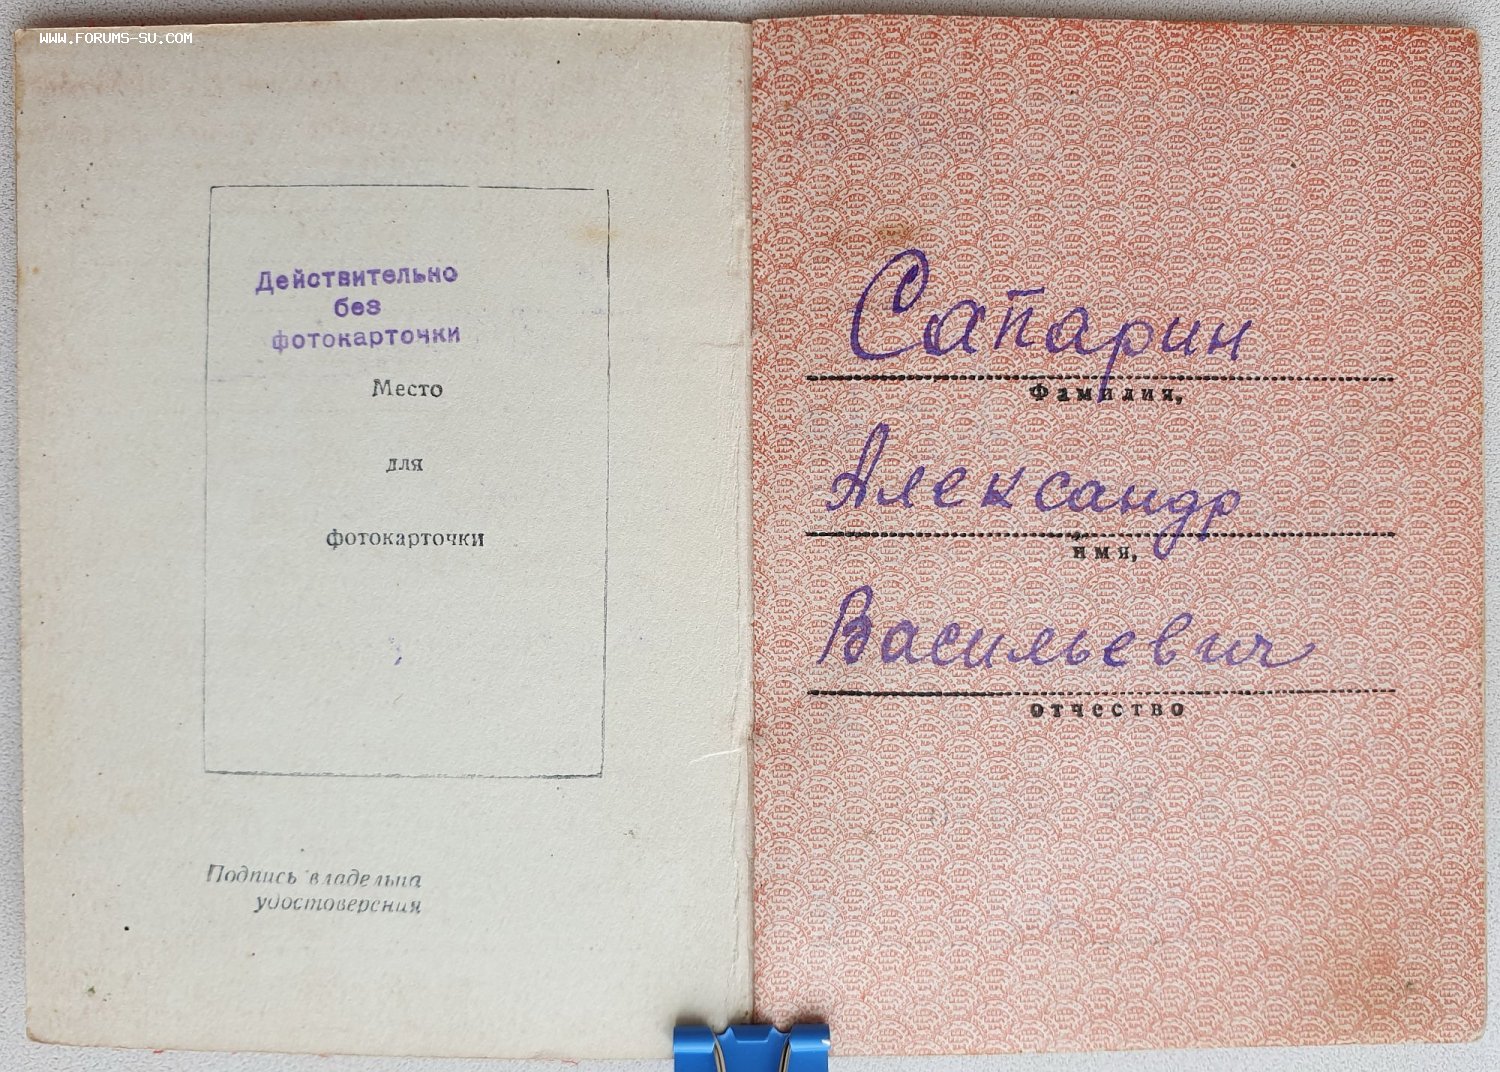 WWW.FORUMS-SU.COM
Действительно
без
фотокарточки
Место
для
фотокарточки
Подпись владельца
удостоверения
Сапарин
Фамилия,
Александр
имя,
Васильевич
отчество